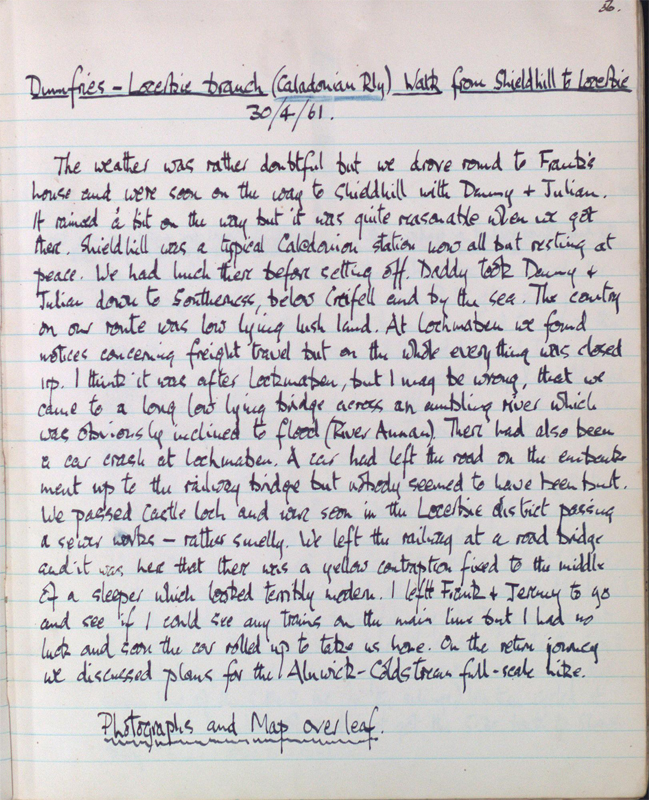 56.
Dumfries - Lockerbie branch (Caladonian Rly) Walk from Shieldhill to Lockerbie
30/4/61.
The weather was rather doubtful but we drove round to Frank's
house and were soon on the way to Shieldhill with Danny + Julian.
It rained a bit on the way but it was quite reasonable when we got
there. Shieldhill was a typical Caledonian station now all but resting at
peace. We had lunch there before setting off. Daddy took Danny +
Julian down to Southerness, below Criffell and by the sea. The country
on our route was low lying lush land. At Lochmaben we found
notices concerning freight travel but on the whole everything was closed
up. I think it was after Lochmaben, but I may be wrong, that we
came to a long low lying bridge across an ambling river which
was obviously inclined to flood (River Annan). There had also been
a car crash at Lochmaben. A car had left the road on the embank-
ment up to the railway bridge but nobody seemed to have been hurt.
We passed Castle Loch and were soon in the Lockerbie district passing
a sewer works - rather smelly. We left the railway at a road bridge
and it was here that there was a yellow contraption fixed to the middle
of a sleeper which looked terribly modern. I left Frank + Jeremy to go
and see if I could see any trains on the main line but I had no
luck and soon the car rolled up to take us home. On the return journey
we discussed plans for the Alnwick-Coldstream full-scale hike.
Photographs and Map overleaf.